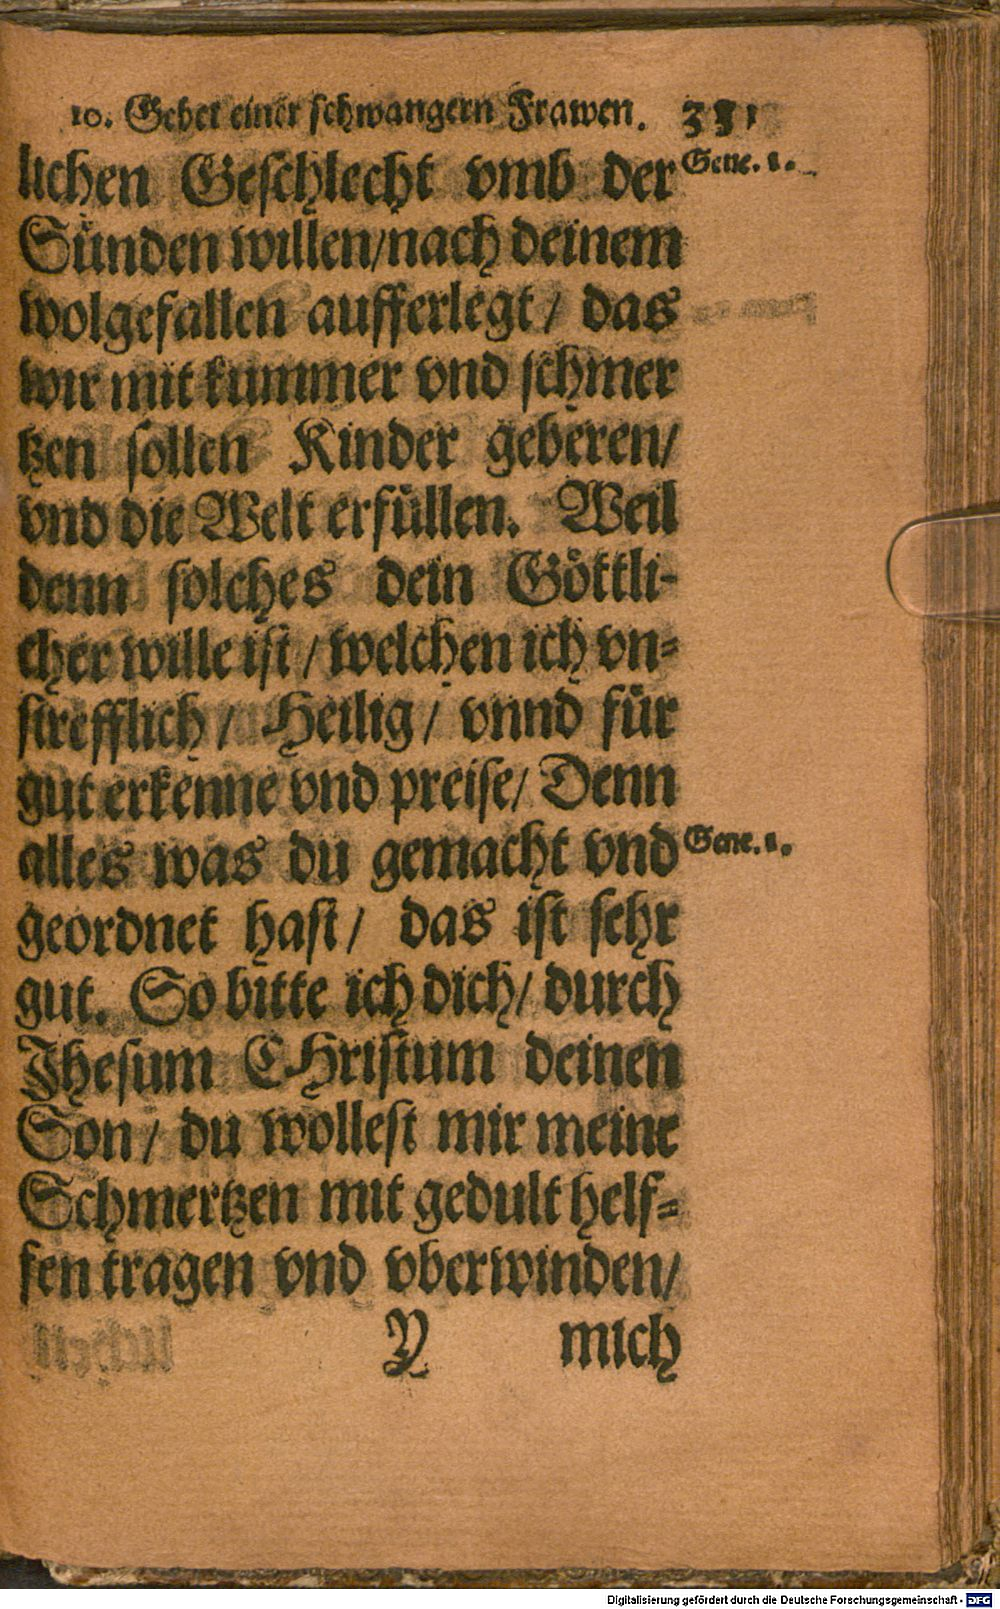 10. Gebet einer schwangern Frawen. 351
lichen Geschlecht vmb der Gene. 1.
Sünden willen/nach deinem
wolgefallen aufferlegt/ das
wir mit kummer vnd schmer
tzen sollen Kinder geberen/
vnd die Welt erfüllen. Weil
denn solches dein Göttli-
cher wille ist/ welchen ich vn-
strefflich/ Heilig/ vnnd für
gut erkenne vnd preise/ Denn
alles was du gemacht vnd Gene. 1.
geordnet hast/ das ist sehr
gut. So bitte ich dich/ durch
Jhesum CHristum deinen
Son/ du wollest mir meine
Schmertzen mit gedult helf-
fen tragen vnd vberwinden/
Y mich
Digitalisierung gefördert durch die Deutsche Forschungsgemeinschaft - DFG